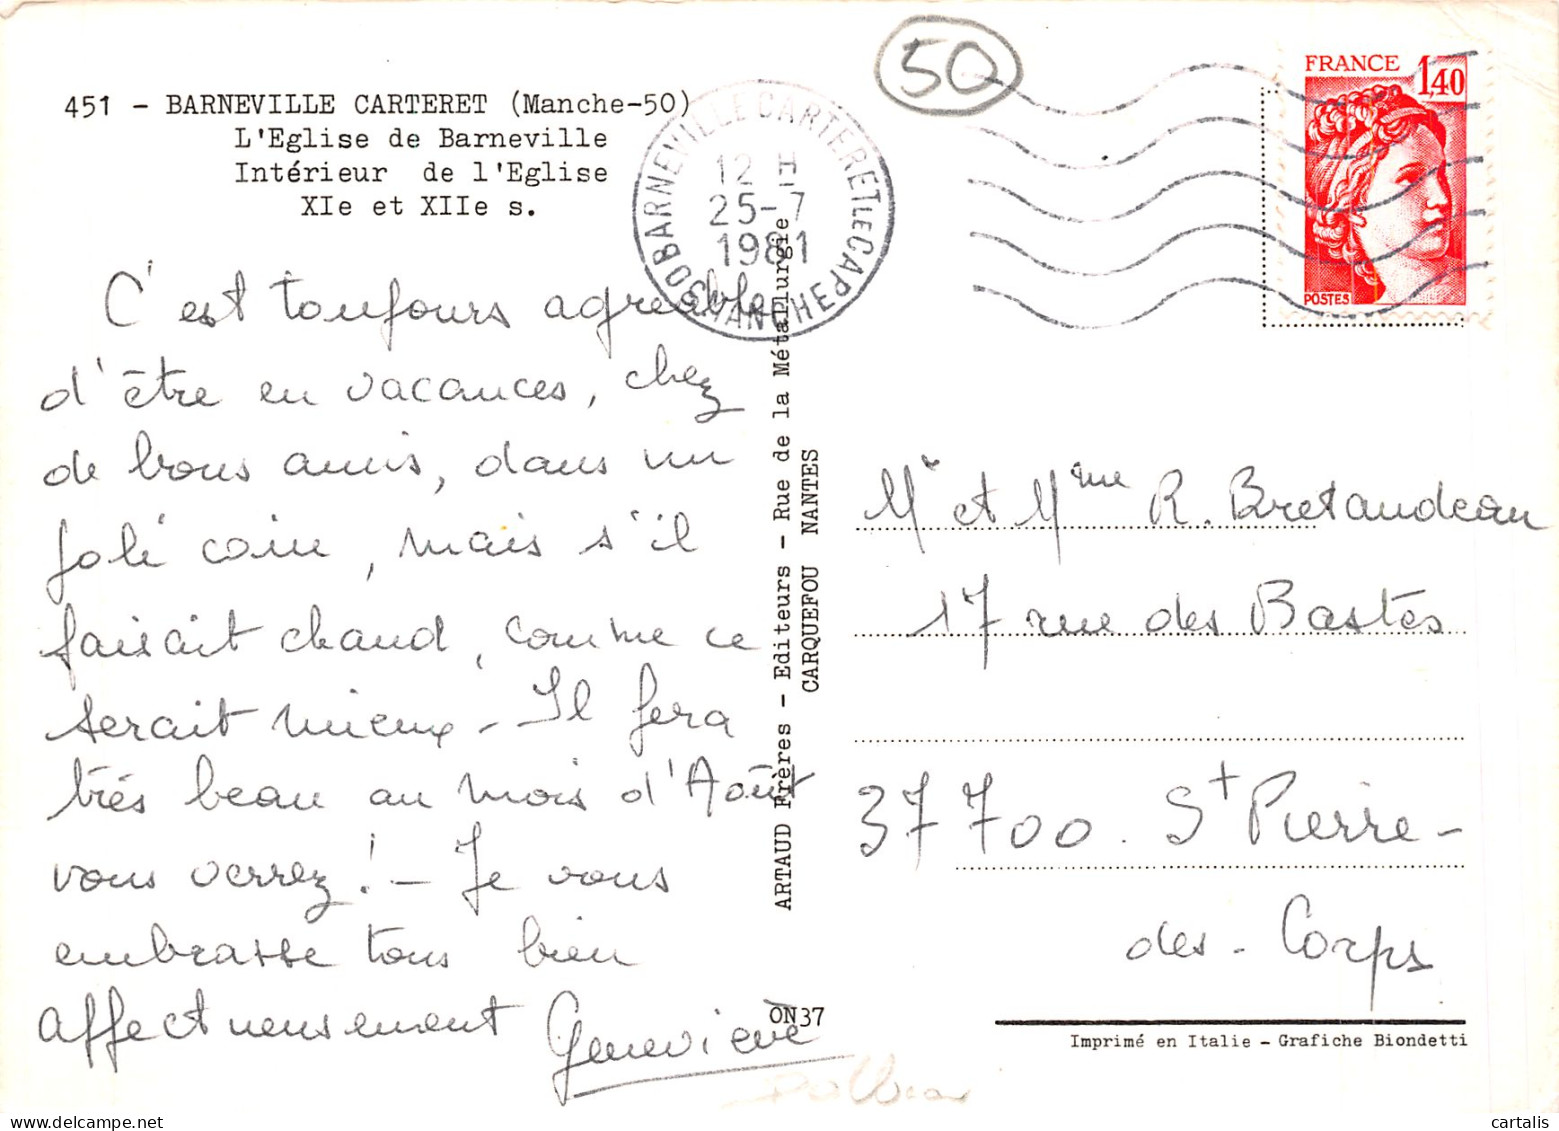 50
451 - BARNEVILLE CARTERET (Manche-50)
L'Eglise de Barneville
Intérieur de l'Eglise
XIe et XIIe s.
50 BARNEVILLE CARTERET LE CAP
MANCHE
12 H
25-7
1981
FRANCE 1,40
POSTES
C'est toujours agréable
d'être en vacances, chez
de bons amis, dans un
joli coin, mais s'il
faisait chaud, comme ce
serait mieux - Il fera
très beau au mois d'Août
vous verrez! - Je vous
embrasse tous bien
affectueusement Geneviève
ARTAUD Frères - Editeurs - Rue de la Métallurgie
CARQUEFOU NANTES
ON37
Mr et Mme R. Bretaudeau
17 rue des Bastes
37700. St Pierre-
des-Corps
Imprimé en Italie - Grafiche Biondetti
cartalis